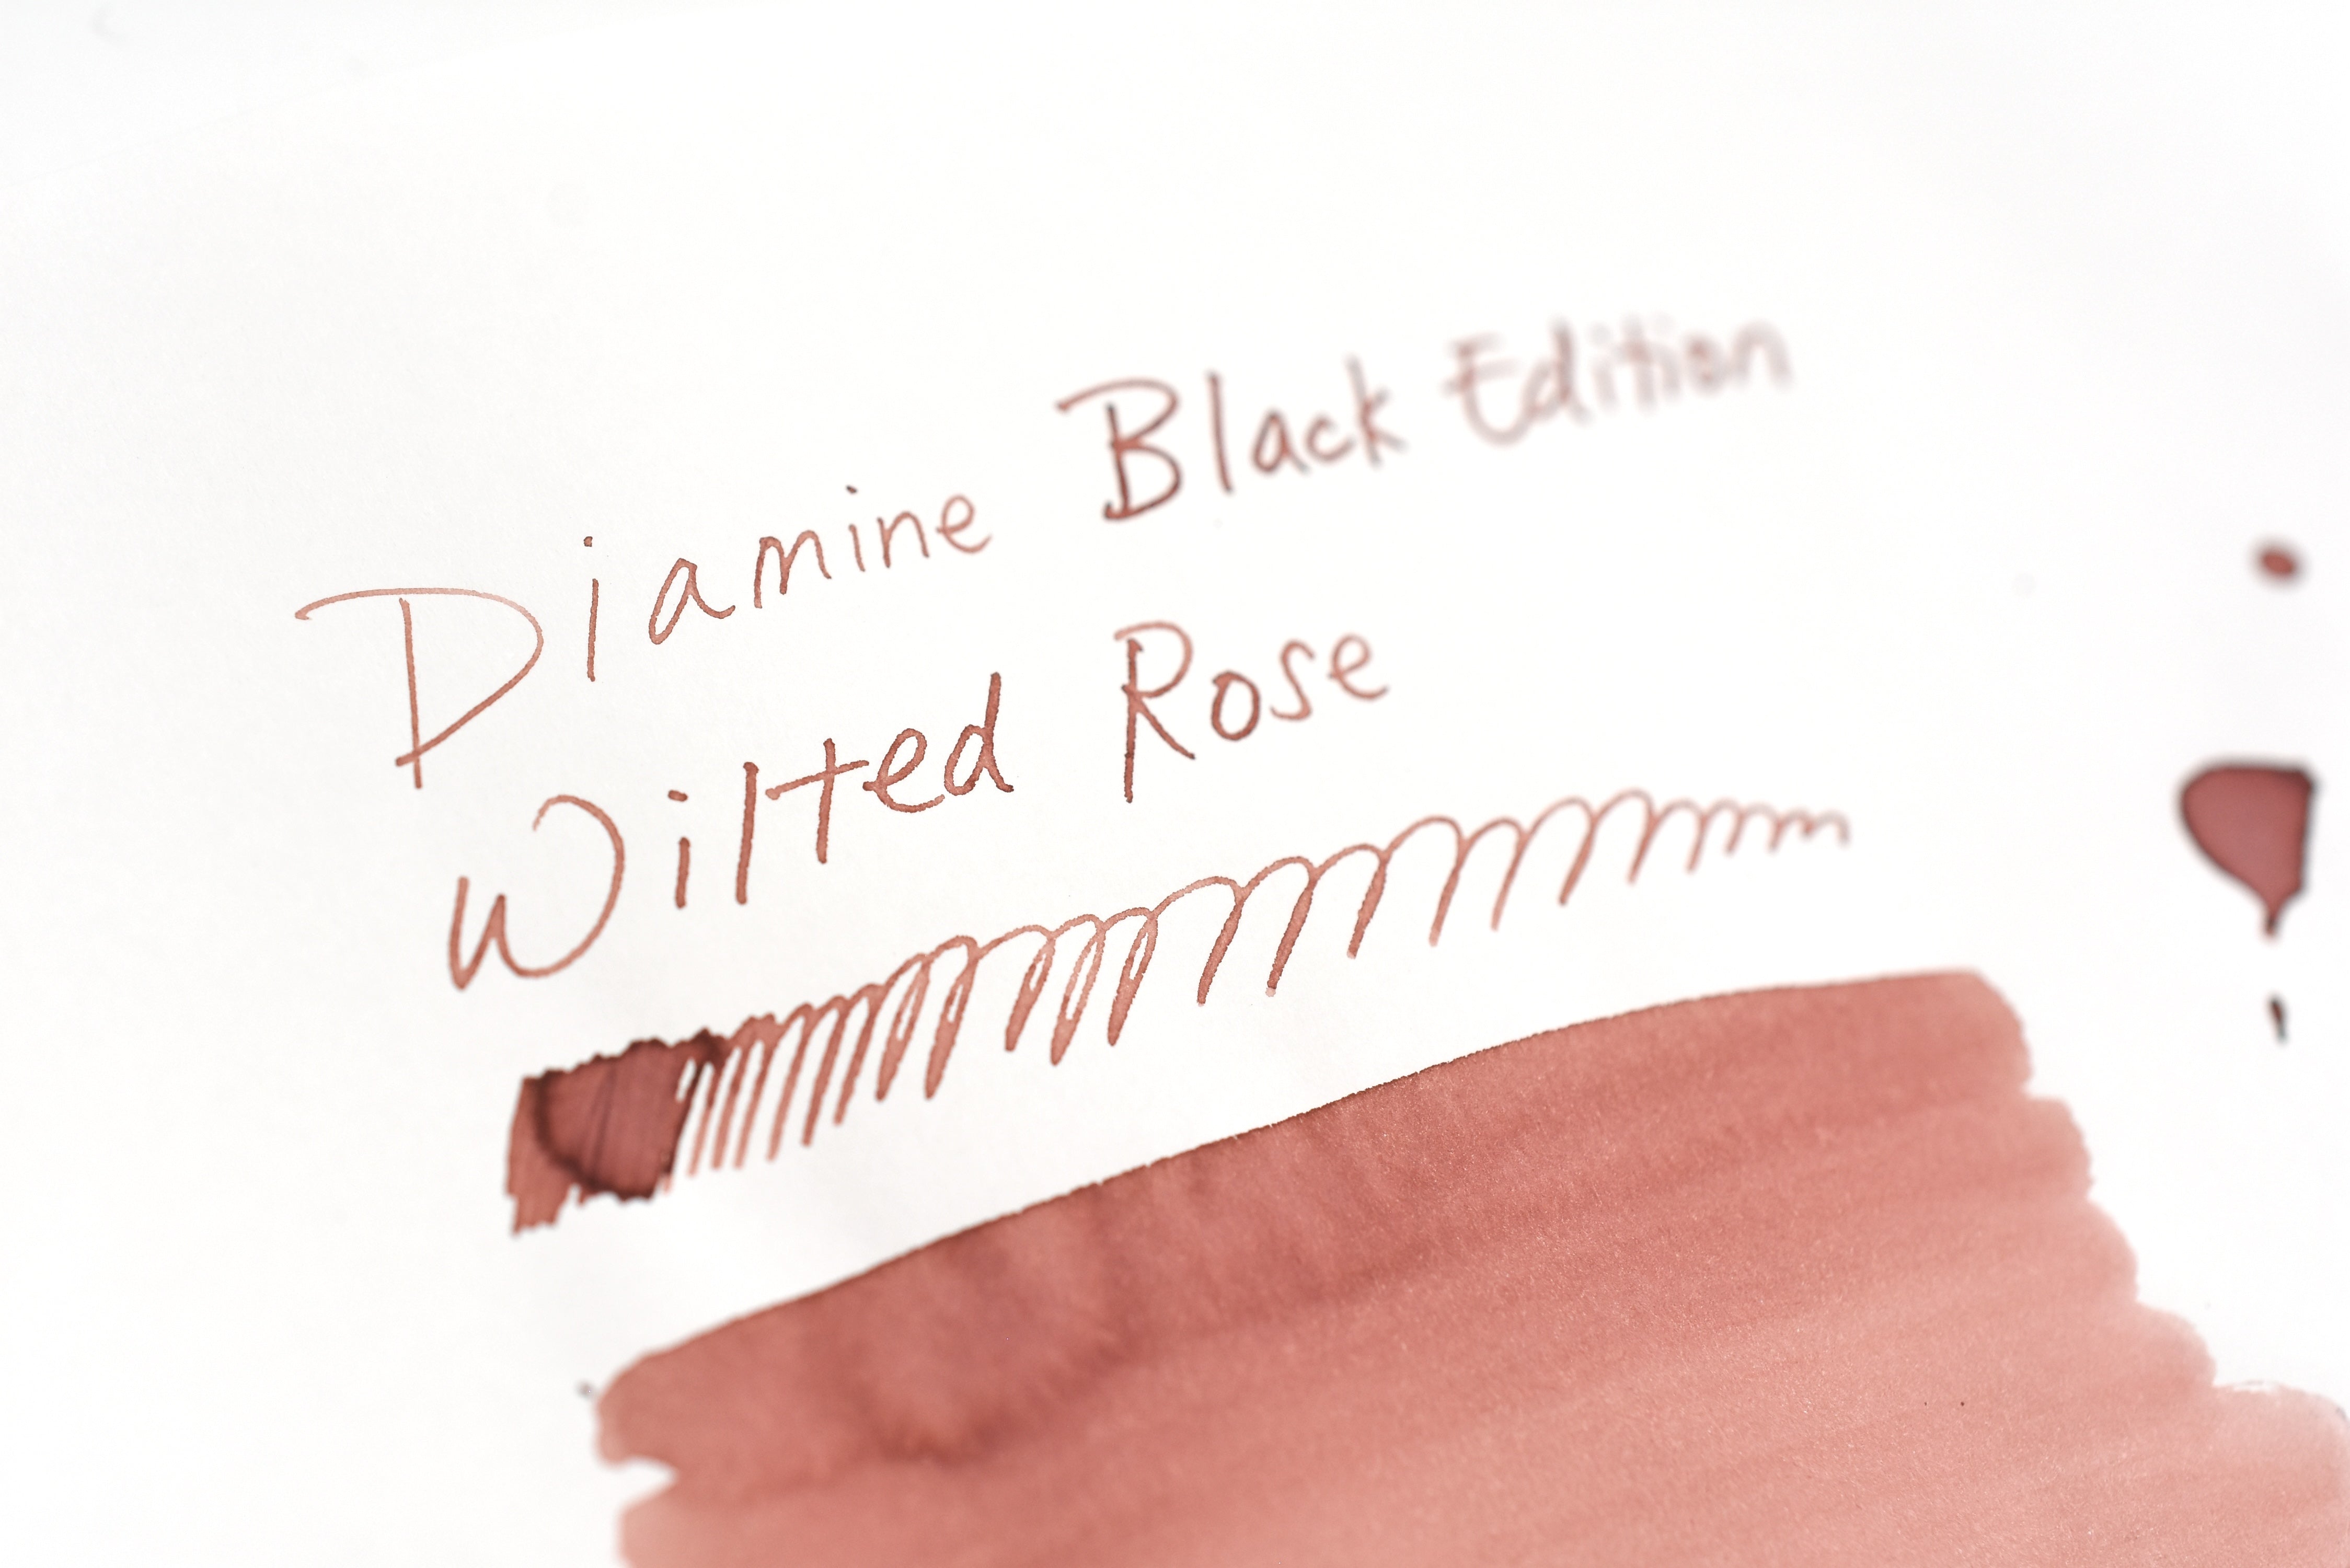 Diamine Black Edition
Wilted Rose